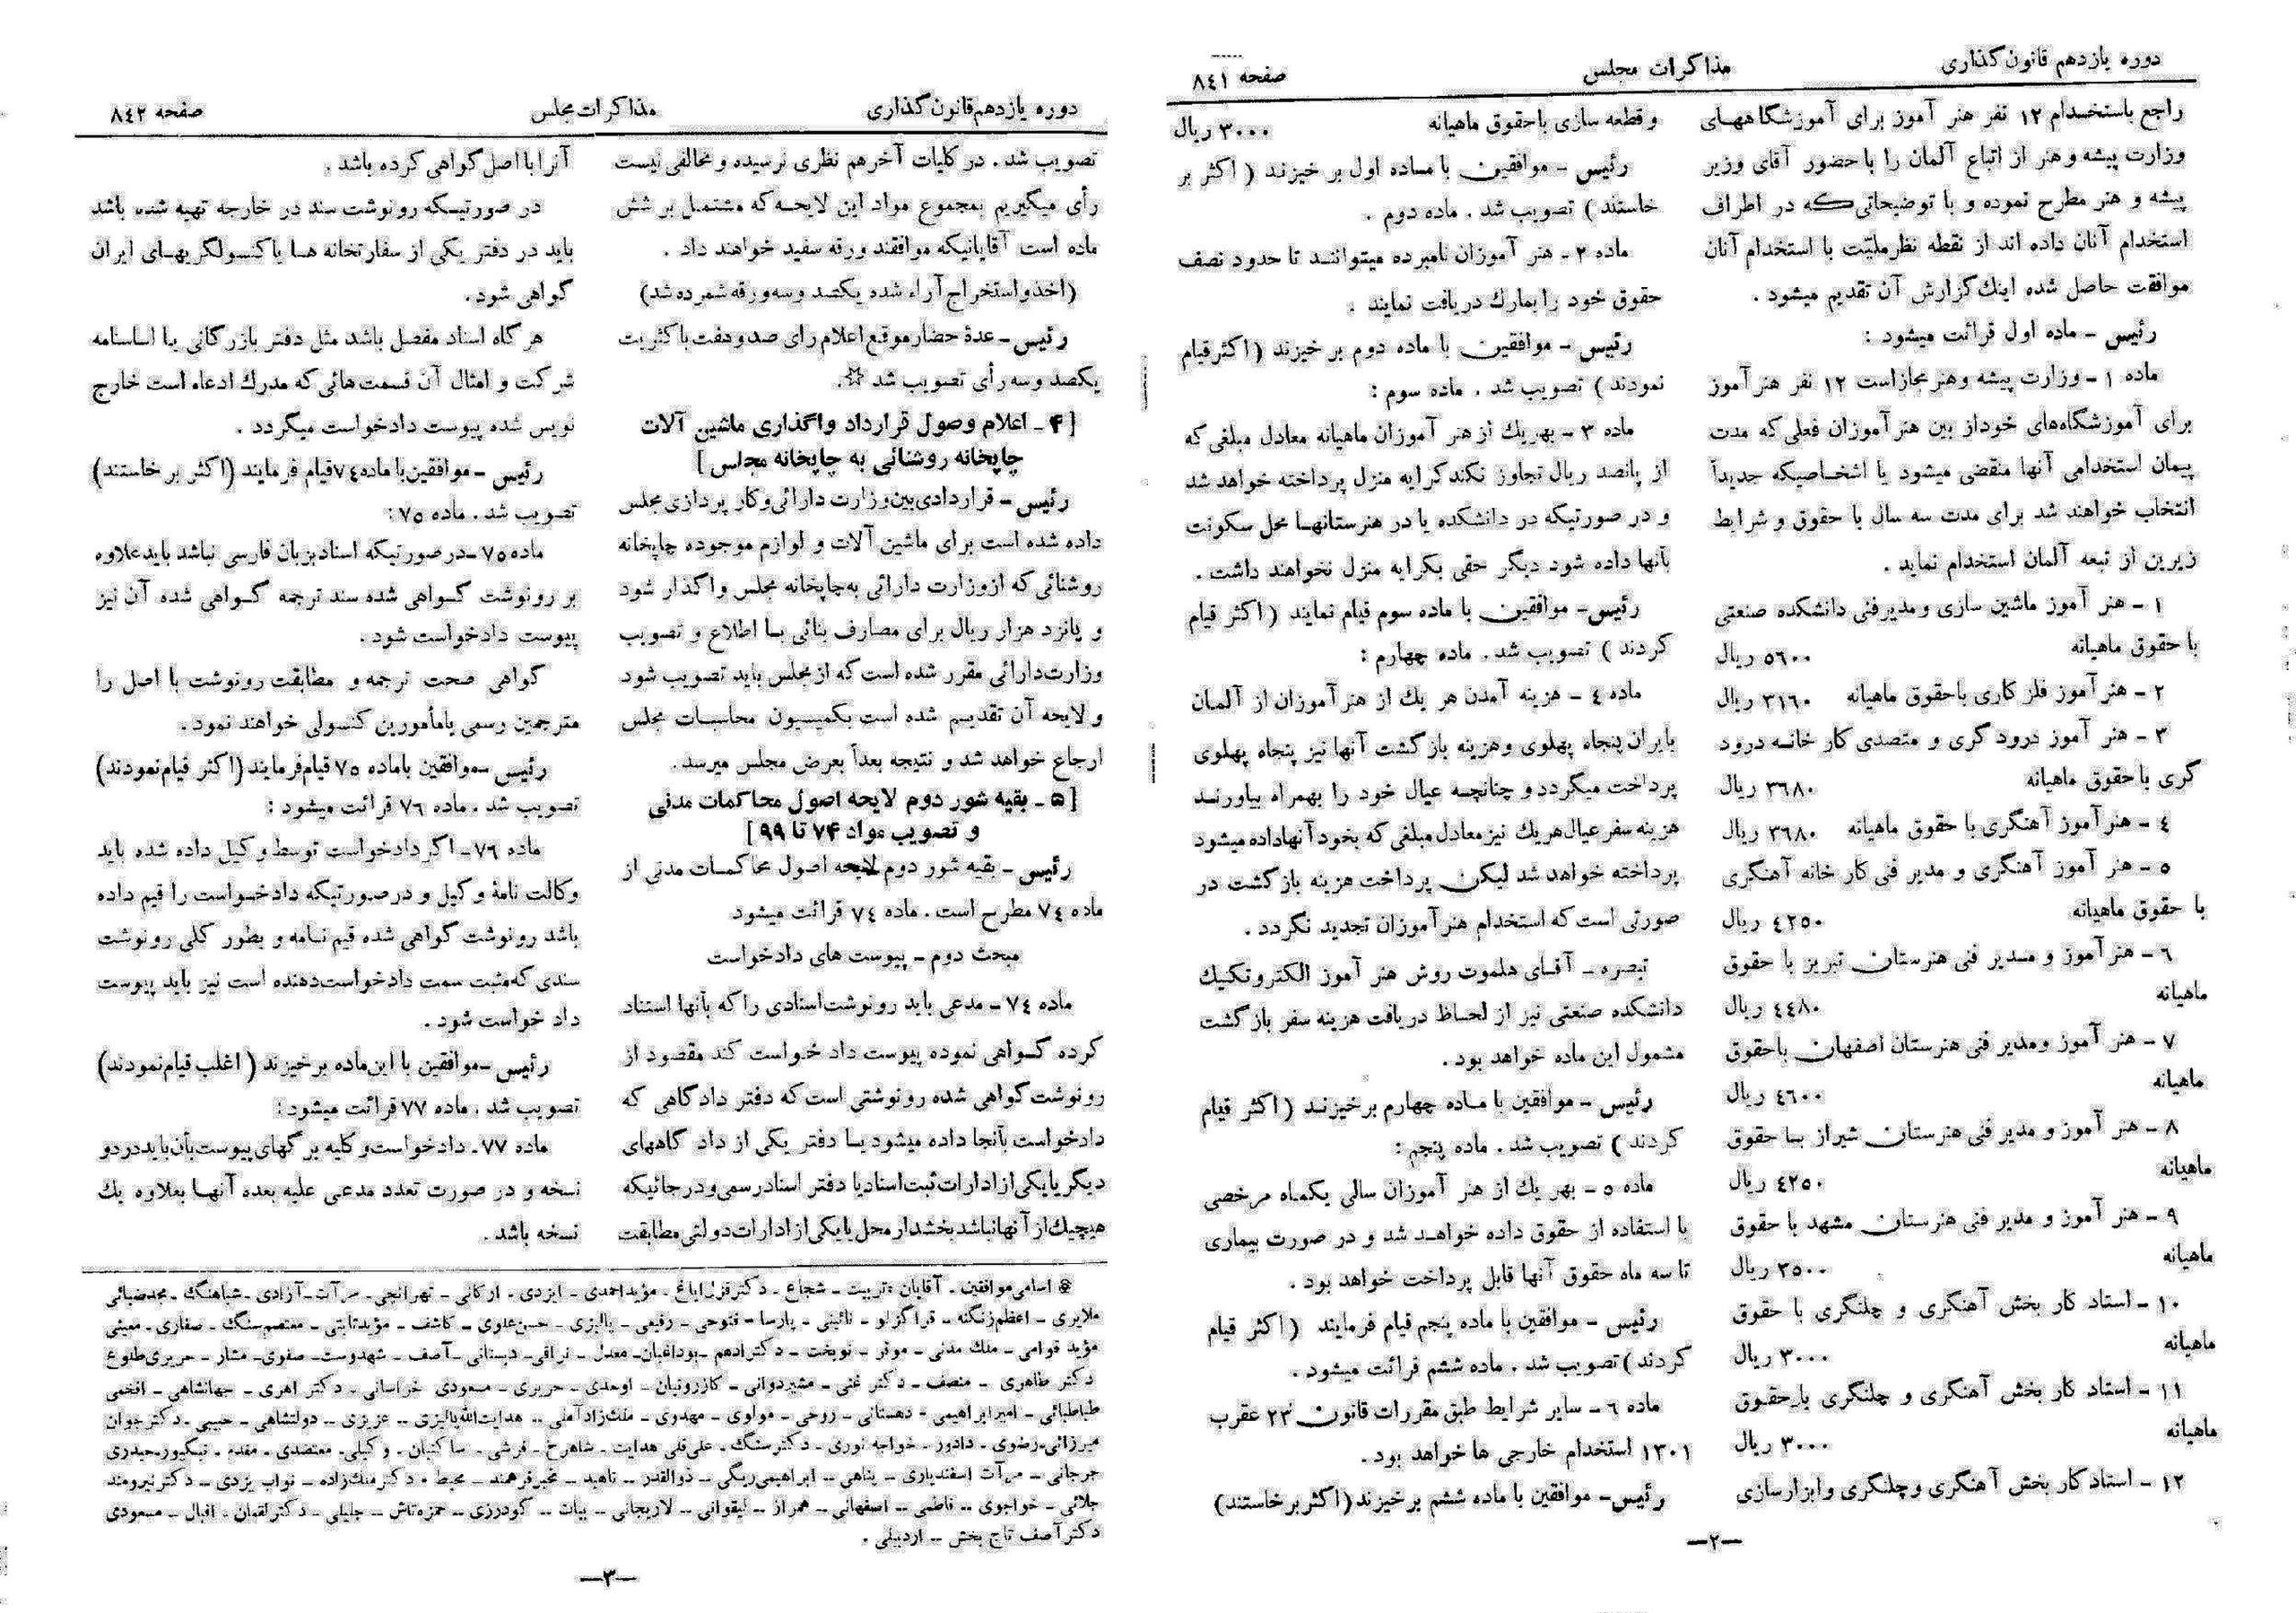 دوره یازدهم قانون‌گذاری
مذاکرات مجلس
صفحه ۸٤۱
راجع باستخدام ۱۲ نفر هنر آموز برای آموزشگاههای
وزارت پیشه و هنر از اتباع آلمان را با حضور آقای وزیر
پیشه و هنر مطرح نموده و با توضیحاتی که در اطراف
استخدام آنان داده اند از نقطه نظر ملیّت با استخدام آنان
موافقت حاصل شده اینك گزارش آن تقدیم میشود .
رئیس – ماده اول قرائت میشود :
ماده ۱ – وزارت پیشه و هنر مجاز است ۱۲ نفر هنر آموز
برای آموزشگاه‌های خود از بین هنر آموزان فعلی که مدت
پیمان استخدامی آنها منقضی میشود یا اشخاصیکه جدیداً
انتخاب خواهند شد برای مدت سه سال با حقوق و شرایط
زیرین از تبعه آلمان استخدام نماید .
۱ – هنر آموز ماشین سازی و مدیر فنی دانشکده صنعتی
با حقوق ماهیانه ٥٦۰۰ ریال
۲ – هنر آموز فلز کاری با حقوق ماهیانه ۳۱٦۰ ریال
۳ – هنر آموز درود گری و متصدی کار خانه درود
گری با حقوق ماهیانه ۳٦۸۰ ریال
٤ – هنر آموز آهنگری با حقوق ماهیانه ۳٦۸۰ ریال
٥ – هنر آموز آهنگری و مدیر فنی کار خانه آهنگری
با حقوق ماهیانه ٤۲٥۰ ریال
٦ – هنر آموز و مدیر فنی هنرستان تبریز با حقوق
ماهیانه ٤٤۸۰ ریال
۷ – هنر آموز و مدیر فنی هنرستان اصفهان با حقوق
ماهیانه ٤٦۰۰ ریال
۸ – هنر آموز و مدیر فنی هنرستان شیراز با حقوق
ماهیانه ٤۲٥۰ ریال
۹ – هنر آموز و مدیر فنی هنرستان مشهد با حقوق
ماهیانه ۳٥۰۰ ریال
۱۰ – استاد کار بخش آهنگری و چلنگری با حقوق
ماهیانه ۳۰۰۰ ریال
۱۱ – استاد کار بخش آهنگری و چلنگری با حقوق
ماهیانه ۳۰۰۰ ریال
۱۲ – استاد کار بخش آهنگری و چلنگری و ابزار سازی
و قطعه سازی با حقوق ماهیانه ۳۰۰۰ ریال
رئیس – موافقین با ماده اول بر خیزند ( اکثر بر
خاستند ) تصویب شد . ماده دوم .
ماده ۲ – هنر آموزان نامبرده میتوانند تا حدود نصف
حقوق خود را بمارك دریافت نمایند .
رئیس – موافقین با ماده دوم بر خیزند (اکثر قیام
نمودند ) تصویب شد . ماده سوم :
ماده ۳ – بهر یك از هنر آموزان ماهیانه معادل مبلغی که
از پانصد ریال تجاوز نکند کرایه منزل پرداخته خواهد شد
و در صورتیکه در دانشکده یا در هنرستانها محل سکونت
بآنها داده شود دیگر حقی بکرایه منزل نخواهند داشت .
رئیس – موافقین با ماده سوم قیام نمایند (اکثر قیام
کردند ) تصویب شد . ماده چهارم :
ماده ٤ – هزینه آمدن هر یك از هنر آموزان از آلمان
بایران پنجاه پهلوی و هزینه بازگشت آنها نیز پنجاه پهلوی
پرداخت میگردد و چنانچه عیال خود را بهمراه بیاورند
هزینه سفر عیال هر یك نیز معادل مبلغی که بخود آنها داده میشود
پرداخته خواهد شد لیکن پرداخت هزینه بازگشت در
صورتی است که استخدام هنر آموزان تجدید نگردد .
تبصره – آقای هلموت روش هنر آموز الکتروتکنیك
دانشکده صنعتی نیز از لحاظ دریافت هزینه سفر بازگشت
مشمول این ماده خواهد بود .
رئیس – موافقین با ماده چهارم برخیزند (اکثر قیام
کردند ) تصویب شد . ماده پنجم :
ماده ٥ – بهر یك از هنر آموزان سالی یکماه مرخصی
با استفاده از حقوق داده خواهد شد و در صورت بیماری
تا سه ماه حقوق آنها قابل پرداخت خواهد بود .
رئیس – موافقین با ماده پنجم قیام فرمایند (اکثر قیام
کردند) تصویب شد . ماده ششم قرائت میشود .
ماده ٦ – سایر شرایط طبق مقررات قانون ۲۳ عقرب
۱۳۰۱ استخدام خارجی ها خواهد بود .
رئیس – موافقین با ماده ششم بر خیزند (اکثر بر خاستند)
—۲—
دوره یازدهم قانون‌گذاری
مذاکرات مجلس
صفحه ۸٤۲
تصویب شد . در کلیات آخر هم نظری نرسیده و مخالفی نیست
رأی میگیریم بمجموع مواد این لایحه که مشتمل بر شش
ماده است آقایانیکه موافقند ورقه سفید خواهند داد .
(اخذ و استخراج آراء شده یکصد و سه ورقه شمرده شد)
رئیس – عدهٔ حضار موقع اعلام رای صد و هفت باکثریت
یکصد و سه رأی تصویب شد ☆.
[۴ – اعلام وصول قرارداد واگذاری ماشین آلات
چاپخانه روشنائی به چاپخانه مجلس]
رئیس – قراردادی بین وزارت دارائی و کار پردازی مجلس
داده شده است برای ماشین آلات و لوازم موجوده چاپخانه
روشنائی که از وزارت دارائی به چاپخانه مجلس واگذار شود
و پانزد هزار ریال برای مصارف بنائی با اطلاع و تصویب
وزارت دارائی مقرر شده است که از مجلس باید تصویب شود
و لایحه آن تقدیم شده است بکمیسیون محاسبات مجلس
ارجاع خواهد شد و نتیجه بعداً بعرض مجلس میرسد .
[۵ – بقیه شور دوم لایحه اصول محاکمات مدنی
و تصویب مواد ۷۴ تا ۹۹]
رئیس – بقیه شور دوم لایحه اصول محاکمات مدنی از
ماده ۷٤ مطرح است . ماده ۷٤ قرائت میشود
مبحث دوم – پیوست های دادخواست
ماده ۷٤ – مدعی باید رونوشت اسنادی را که بآنها استناد
کرده گواهی نموده پیوست داد خواست کند مقصود از
رونوشت گواهی شده رونوشتی است که دفتر دادگاهی که
دادخواست بآنجا داده میشود یا دفتر یکی از داد گاههای
دیگر یا یکی از ادارات ثبت اسناد یا دفتر اسناد رسمی و در جائیکه
هیچیك از آنها نباشد بخشدار محل یا یکی از ادارات دولتی مطابقت
آنرا با اصل گواهی کرده باشد .
در صورتیکه رونوشت سند در خارجه تهیه شده باشد
باید در دفتر یکی از سفارتخانه ها یا کنسولگریهای ایران
گواهی شود .
هر گاه اسناد مفصل باشد مثل دفتر بازرگانی یا اساسنامه
شرکت و امثال آن قسمت هائی که مدرك ادعاء است خارج
نویس شده پیوست دادخواست میگردد .
رئیس – موافقین با ماده ۷٤ قیام فرمایند (اکثر بر خاستند)
تصویب شد . ماده ۷٥ :
ماده ۷٥ – در صورتیکه اسناد بزبان فارسی نباشد باید علاوه
بر رونوشت گواهی شده سند ترجمه گواهی شده آن نیز
پیوست دادخواست شود .
گواهی صحت ترجمه و مطابقت رونوشت با اصل را
مترجمین رسمی یا مأمورین کنسولی خواهند نمود .
رئیس – موافقین با ماده ۷٥ قیام فرمایند (اکثر قیام نمودند)
تصویب شد . ماده ۷٦ قرائت میشود :
ماده ۷٦ – اگر دادخواست توسط وکیل داده شده باید
وکالت نامهٔ وکیل و در صورتیکه دادخواست را قیم داده
باشد رونوشت گواهی شده قیم نامه و بطور کلی رونوشت
سندی که مثبت سمت دادخواست دهنده است نیز باید پیوست
داد خواست شود .
رئیس – موافقین با این ماده بر خیزند ( اغلب قیام نمودند)
تصویب شد . ماده ۷۷ قرائت میشود :
ماده ۷۷ – دادخواست و کلیه برگهای پیوست بآن باید در دو
نسخه و در صورت تعدد مدعی علیه بعده آنها بعلاوه یك
نسخه باشد .
☆ اسامی موافقین – آقایان : تربیت – شجاع – دکتر قزل ایاغ – مؤید احمدی – ایزدی – ارکانی – تهرانچی – مرآت – آزادی – شباهنگ – مجد ضیائی
ملایری – اعظم زنگنه – قراگزلو – نائینی – پارسا – فتوحی – رفیعی – پالیزی – حسن علوی – کاشف – مؤید ثابتی – معتصم سنگ – صفاری – معینی
مؤید قوامی – ملك مدنی – موقر – نوبخت – دکتر ادهم – بوداغیان – معدل – نراقی – دبستانی – آصف – شهدوست – صفوی – مشار – حریری طلوع
دکتر طاهری – منصف – دکتر غنی – مشیر دوانی – کازرونیان – اوحدی – حریری – مسعودی خراسانی – دکتر اهری – جهانشاهی – افخمی
طباطبائی – امیر ابراهیمی – دهستانی – روحی – مولوی – مهدوی – ملك زاد آملی – هدایت الله پالیزی – عزیزی – دولتشاهی – حبیبی – دکتر جوان
میرزائی – رضوی – دادور – خواجه نوری – دکتر سنگ – علی قلی هدایت – شاهرخ – فرشی – ساکنیان – وکیلی – معتضدی – مقدم – نیکپور – حیدری
جرجانی – مرآت اسفندیاری – پناهی – ابراهیمی ریگی – ذوالقدر – ناهید – مخبر فرهمند – محیط – دکتر ملك زاده – نواب یزدی – دکتر نیرومند
جلائی – خواجوی – فاطمی – اصفهانی – همراز – لیقوانی – لاریجانی – بیات – گودرزی – حمزه تاش – جلیلی – دکتر لقمان – اقبال – مسعودی
دکتر آصف تاج بخش – اردبیلی .
—۳—